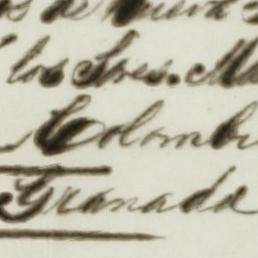 de Nueva
los Sres. Ma
Colombi
Granada